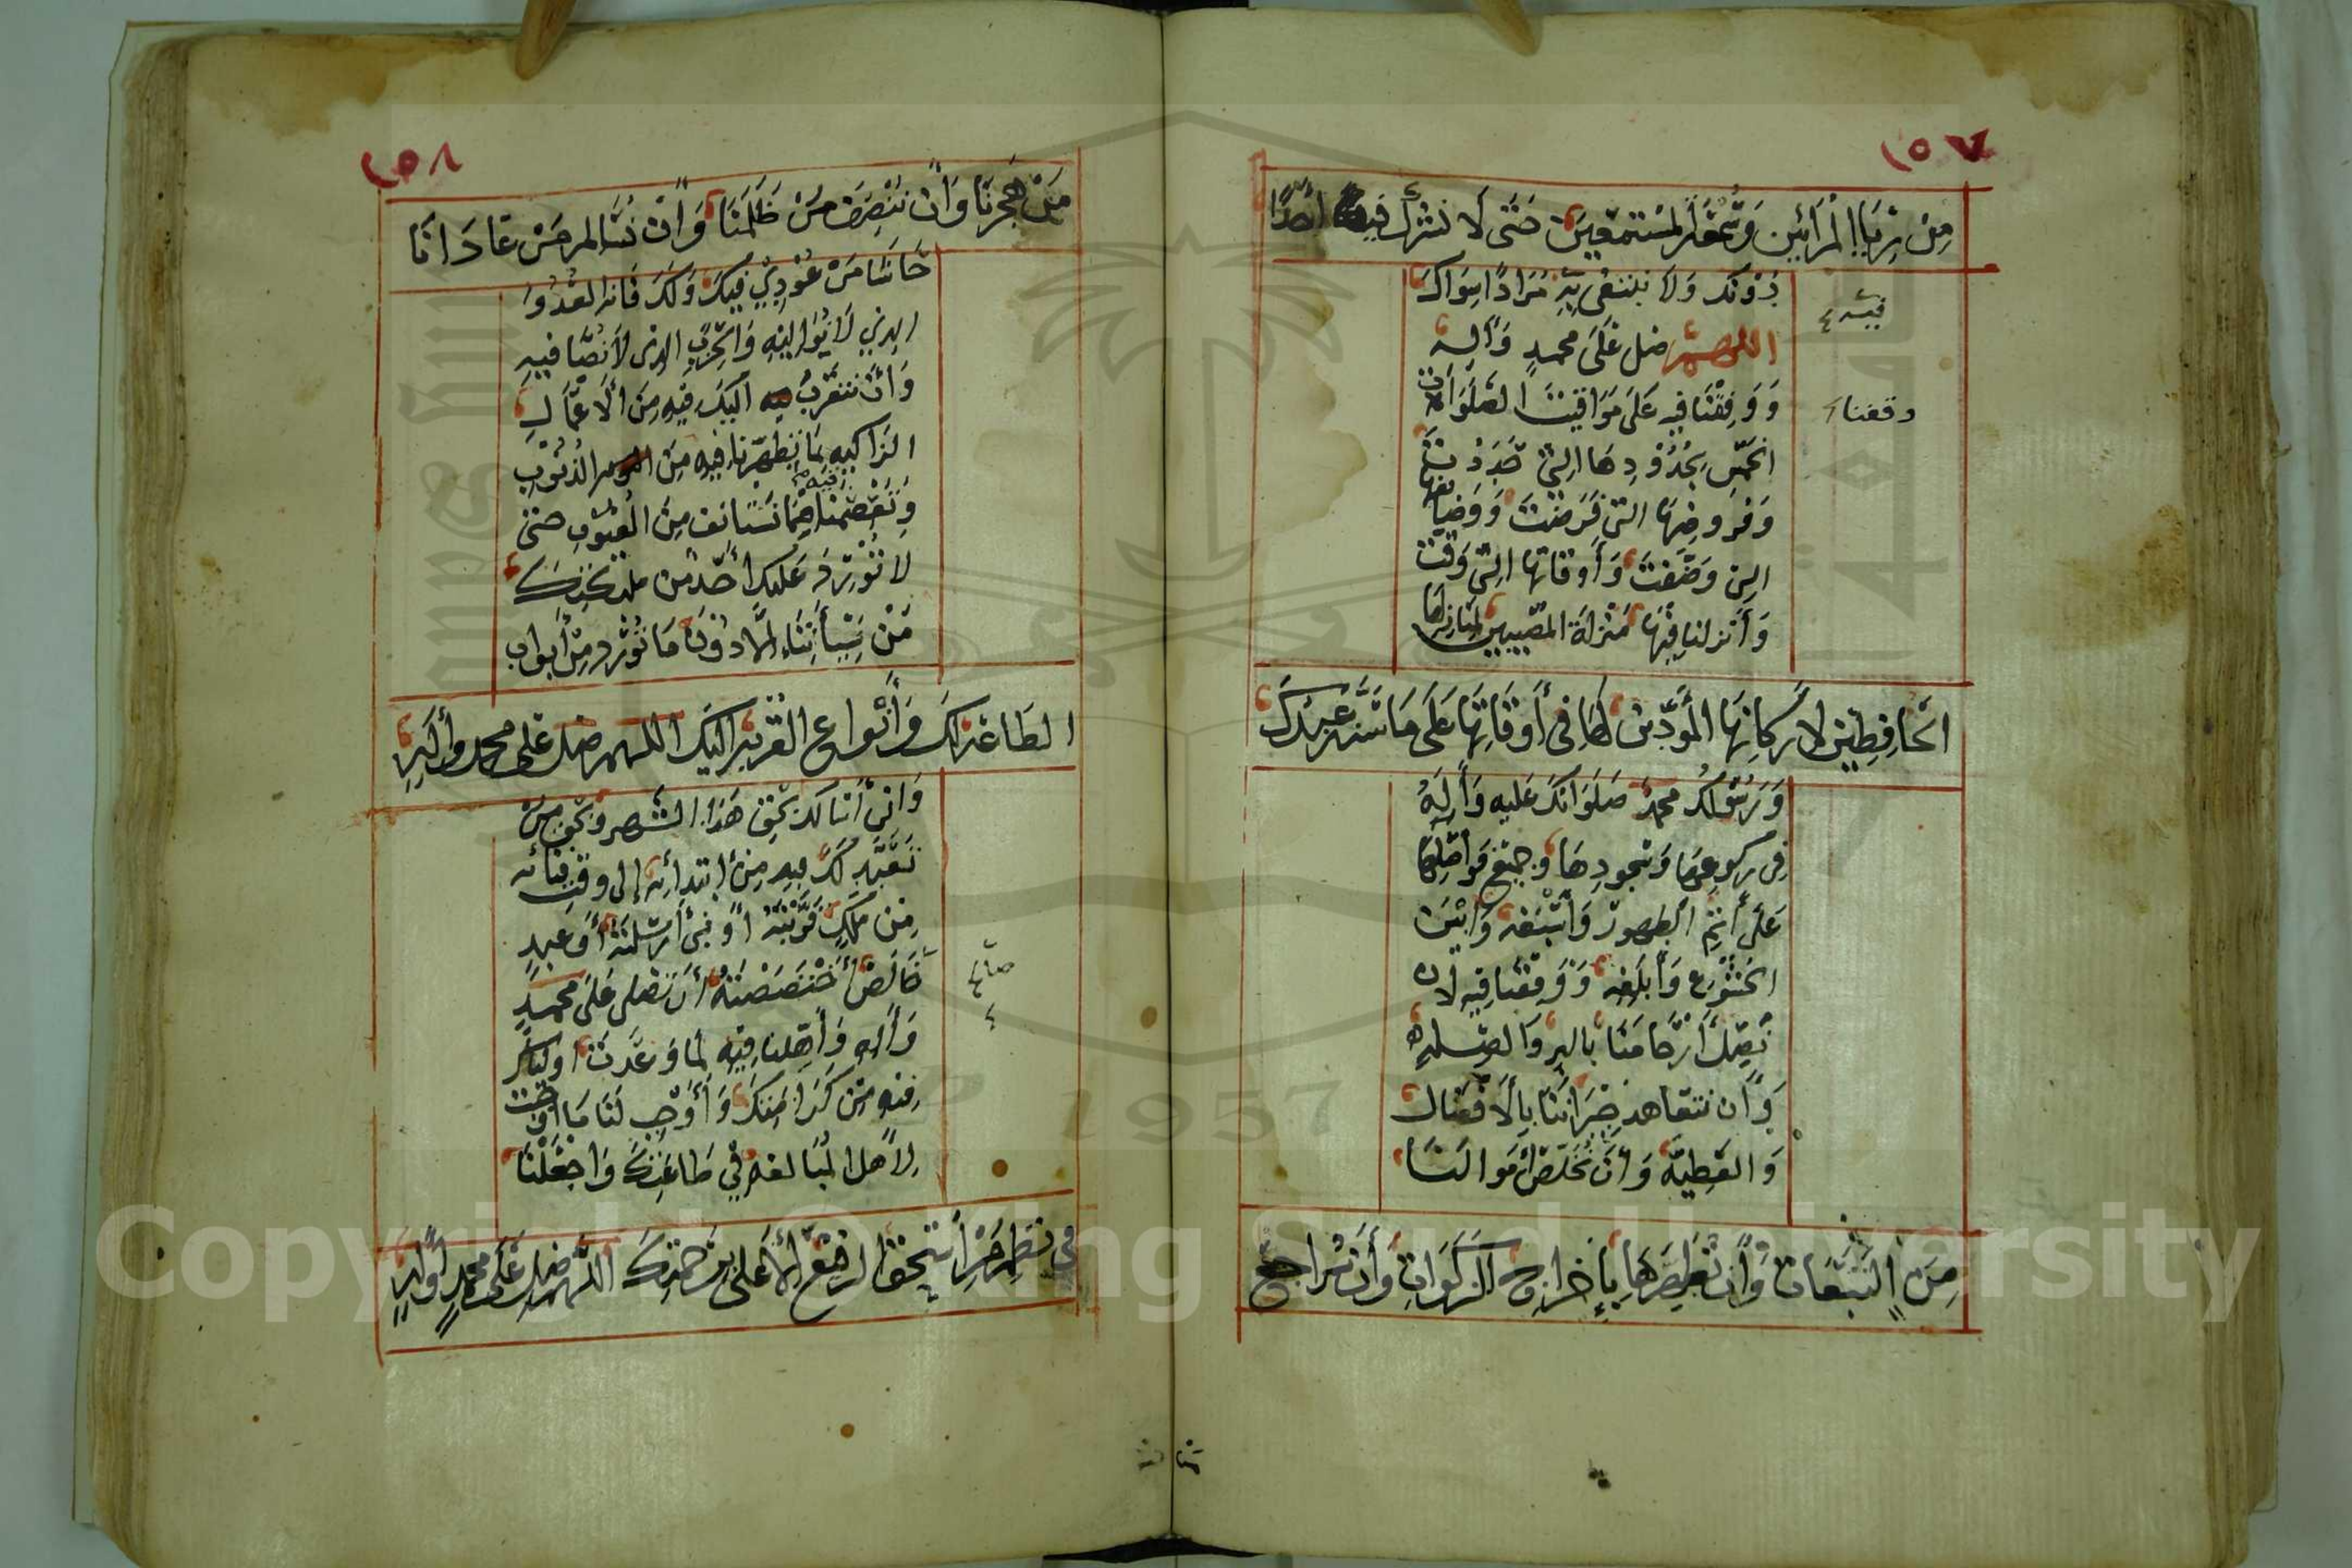 ١٥٧
مِنْ رِيَاءِ الْمُرَائِينَ وَسُمْعَةِ الْمُسْتَمِعِينَ حَتَّى لَا نُشْرِكَ فِيهِ أَحَدًا
دُوْنَكَ وَلَا نَبْتَغِي بِهِ مُرَادًا سِوَاكَ
فيه
اللهم صل عَلَى محمدٍ وَآلِهِ
وَوَقِفْنَا فِيهِ عَلَى مَوَاقِيتِ الصَّلَوَاتِ
وقفنا
الخَمْسِ بِحُدُوْدِهَا الَّتِي حَدَدْتَ
وَفُرُوضِهَا الَّتِي فَرَضْتَ وَوَضَائِفِهَا
الَّتِي وَضَّفْتَ وَأَوْقَاتِهَا الَّتِي وَقَّتَّ
وَأَنْزِلْنَا فِيْهَا مَنْزِلَةَ الْمُصِيبِينَ لِمَنَازِلِهَا
الحَافِظِيْنَ لِأَرْكَانِهَا الْمُؤَدِّيْنَ لَهَا فِي أَوْقَاتِهَا عَلَى مَا سَنَّهُ عَبْدُكَ
وَرَسُوْلُكَ محمدٌ صَلَوَاتُكَ عَلَيْهِ وَآلِهِ
فِي رُكُوعِهَا وَسُجُودِهَا وَجَمِيْعِ فَوَاضِلِهَا
عَلَى أَتَمِّ الطَّهُورِ وَأَسْبَغِهِ وَأَبْيَنِ
الخُشُوْعِ وَأَبْلَغِهِ وَوَفِّقْنَا فِيْهِ لِأَنْ
نَصِلَ أَرْحَامَنَا بِالبِرِّ وَالصِّلَةِ
وَأَنْ نَتَعَاهَدَ جِيرَانَنَا بِالْأَفْضَالِ
وَالعَطِيَّةِ وَأَنْ نُخَلِّصَ أَمْوَالَنَا
مِنَ التَّبِعَاتِ وَأَنْ نُطَهِّرَهَا بِإِخْرَاجِ الزَّكَوَاتِ وَأَنْ نُرَاجِعَ
١٥٨
مَنْ هَجَرَنَا وَأَنْ نُنْصِفَ مَنْ ظَلَمَنَا وَأَنْ نُسَالِمَ مَنْ عَادَانَا
حَاشَا مَنْ عُوْدِيَ فِيْكَ وَلَكَ فَإِنَّهُ العَدُوُّ
الذي لَا نُوَالِيْهِ وَالْحِزْبُ الذي لَا نُصَافِيْهِ
وَأَنْ نَتَقَرَّبَ إِلَيْكَ فِيْهِ مِنَ الْأَعْمَالِ
الزَّاكِيَةِ بِمَا تُطَهِّرُنَا فِيْهِ مِنَ الذُّنُوْبِ
فيه
وَتَعْصِمُنَا مِمَّا نَسْتَأْنِفُ مِنَ الْعُيُوْبِ حَتَّى
لَا يُوْرِدَ عَلَيْكَ أَحَدٌ مِنْ مَلَائِكَتِكَ
دُوْنَ مَا نُوْرِدُ مِنْ أَبْوَابِ
الطَّاعَةِ لَكَ وَأَنْوَاعِ القُرْبَةِ إِلَيْكَ اللهم صل عَلَى محمدٍ وَآلِهِ
وَإِنِّي أَسْأَلُكَ بِحَقِّ هَذَا الشَّهْرِ وَبِحَقِّ مَنْ
تَعَبَّدَ لَكَ فِيْهِ مِنْ ابْتِدَائِهِ إِلَى وَقْتِ فَنَائِهِ
مِنْ مَلَكٍ قَرَّبْتَهُ أَوْ نَبِيٍّ أَرْسَلْتَهُ أَوْ عَبْدٍ
اخْتَصَصْتَهُ أَنْ تُصَلِّيَ عَلَى مُحَمَّدٍ
صا
وَآلِهِ وَأَهِّلْنَا فِيْهِ لِمَا وَعَدْتَ أَوْلِيَاءَكَ
فِيْهِ مِنْ كَرَامَتِكَ وَأَوْجِبْ لَنَا مَا أَوْجَبْتَ
لِأَهْلِ الْمُبَالَغَةِ فِي طَاعَتِكَ وَاجْعَلْنَا
فِي نَظْمِ مَنْ اسْتَحَقَّ الرَّفِيْعَ الْأَعْلَى بِرَحْمَتِكَ اللهم صل عَلَى مُحَمَّدٍ وَآلِهِ
1957
Copyright © King Saud University